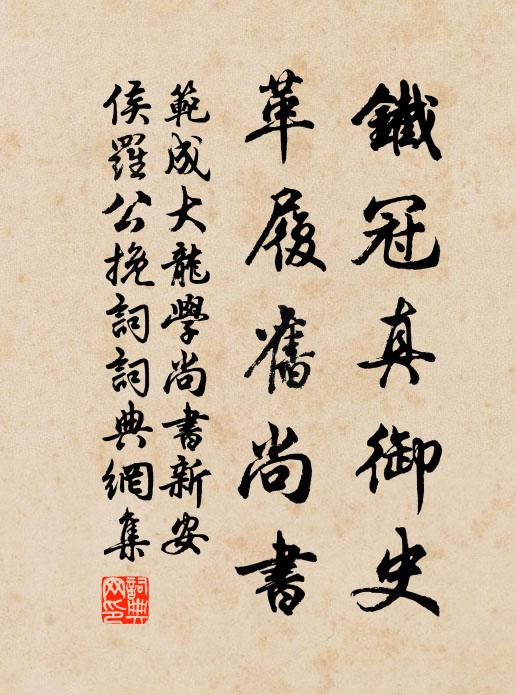 鐵冠真御史
革履舊尚書
範成大龍學尚書新安
侯羅公挽詞詞典網集
詞典網印